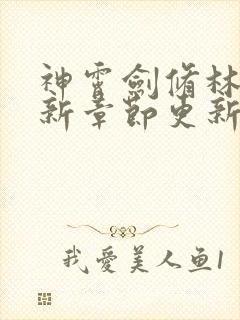 神霄劍脩林
新章節更新
我愛美人鱼1